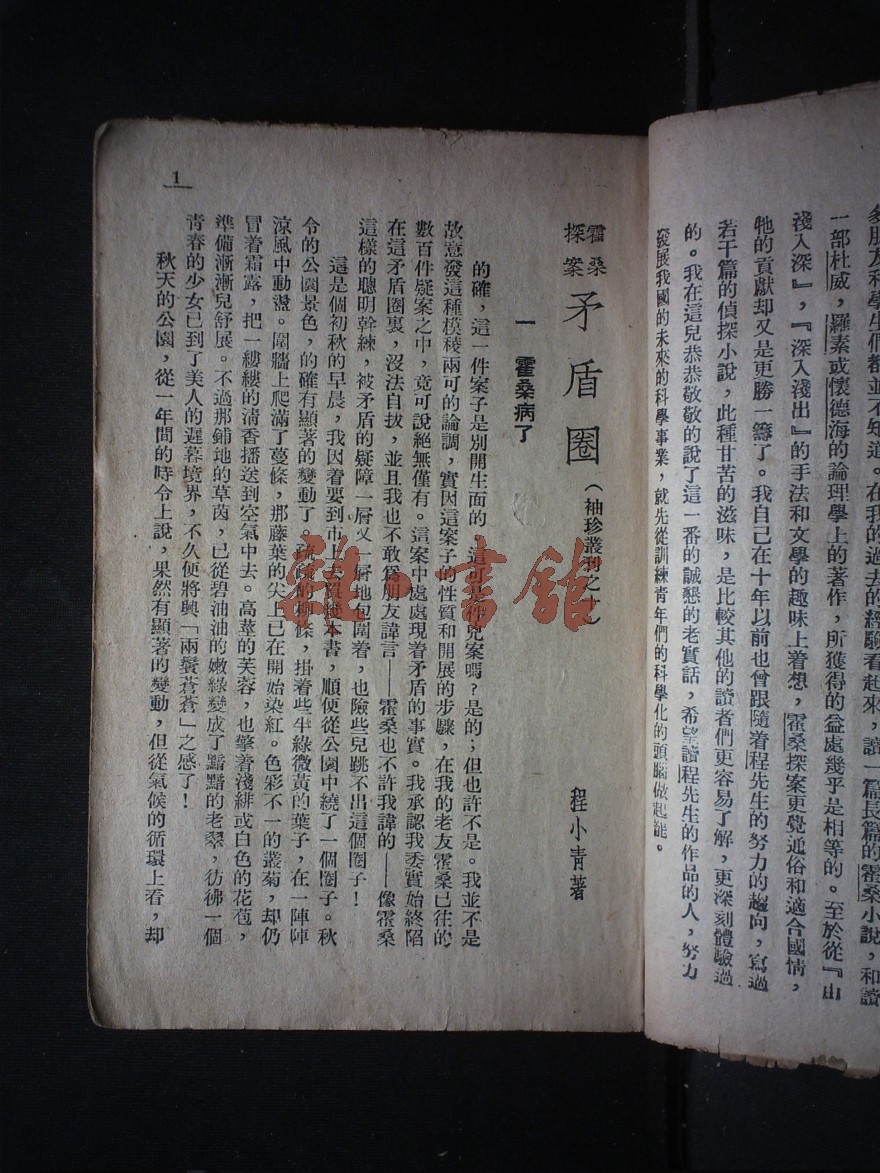 多朋友和學生們都並不知道。在我的過去的經驗看起來，讀一篇長篇的霍桑小說，和讀
一部杜威，羅素或懷德海的論理學上的著作，所獲得的益處幾乎是相等的。至於從『由
淺入深』，『深入淺出』的手法和文學的趣味上着想，霍桑探案更覺通俗和適合國情，
牠的貢獻却又是更勝一籌了。我自己在十年以前也曾跟隨着程先生的努力的趨向，寫過
若干篇的偵探小說，此種甘苦的滋味，是比較其他的讀者們更容易了解，更深刻體驗過
的。我在這兒恭恭敬敬的說了這一番的誠懇的老實話，希望讀程先生的作品的人，努力
發展我國的未來的科學事業，就先從訓練青年們的科學化的頭腦做起罷。
霍桑探案 矛盾圈（袖珍叢刊之十）
程小青著
一 霍桑病了
的確，這一件案子是別開生面的 這可是件兇案嗎？是的；但也許不是。我並不是
故意發這種模稜兩可的論調，實因這案子的性質和開展的步驟，在我的老友霍桑已往的
數百件疑案之中，竟可說絕無僅有。這案中處處現着矛盾的事實。我承認我委實始終陷
在這矛盾圈裏，沒法自拔，並且我也不敢爲朋友諱言——霍桑也不許我諱的——像霍桑
這樣的聰明幹練，被矛盾的疑障一層又一層地包圍着，也險些兒跳不出這個圈子！
這是個初秋的早晨，我因着要到市上去買幾本書，順便從公園中繞了一個圈子。秋
令的公園景色，的確有顯著的變動了。疏疏的柳條，掛着些半綠微黃的葉子，在一陣陣
涼風中動盪。圍牆上爬滿了蔓條，那藤葉的尖上已在開始染紅。色彩不一的叢菊，却仍
冒着霜露，把一縷縷的清香播送到空氣中去。高莖的芙蓉，也擎着淺緋或白色的花苞，
準備漸漸兒舒展。不過那鋪地的草茵，已從碧油油的嫩綠變成了黯黯的老翠，彷彿一個
青春的少女已到了美人的遲暮境界，不久便將興「兩鬢蒼蒼」之感了！
秋天的公園，從一年間的時令上說，果然有顯著的變動，但從氣候的循環上看，却
1
雜書館